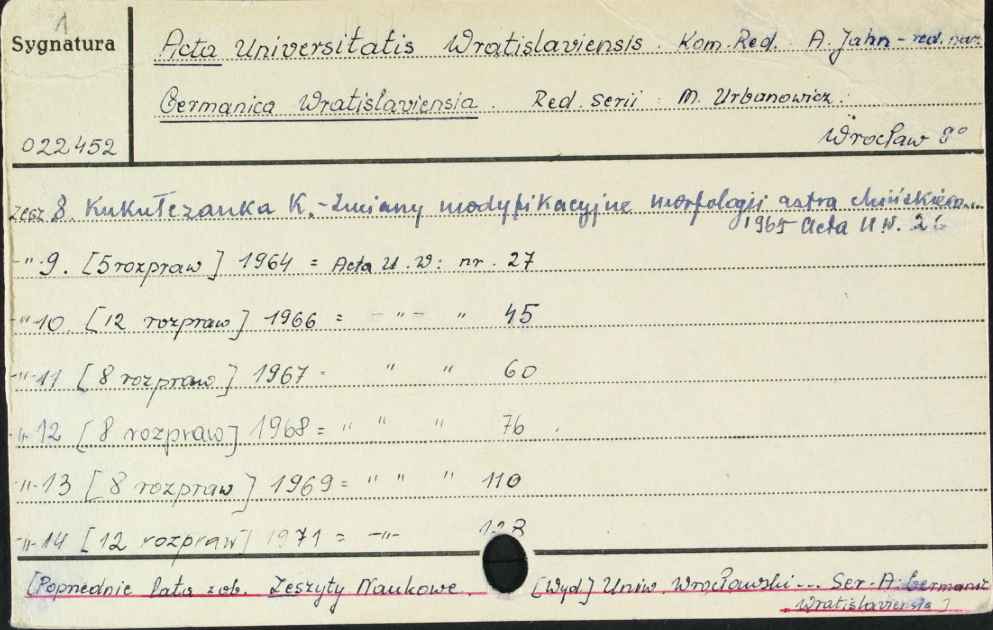 1
Sygnatura
Acta Universitatis Wratislaviensis. Kom. Red. A. Jahn - red. nacz.
Germanica Wratislaviensia. Red. serii: M. Urbanowicz.
022452
Wrocław 8°
zesz. 8. Kukułczanka K. - Zmiany modyfikacyjne morfologii astra chińskiego...
1965 Acta U.W. 26
-"- 9. [5 rozpraw] 1964 = Acta U. W: nr. 27
-"- 10 [12 rozpraw] 1966 = -"- " 45
-"- 11 [8 rozpraw] 1967 - " " 60
-"- 12 [8 rozpraw] 1968 = " " " 76
-"- 13 [8 rozpraw] 1969 = " " " 110
-"- 14 [12 rozpraw] 1971 = -"- 128
[Poprzednie lata zob. Zeszyty Naukowe. [Wyd] Uniw. Wrocławski... Ser. A. Germanic
Wratislaviensia]